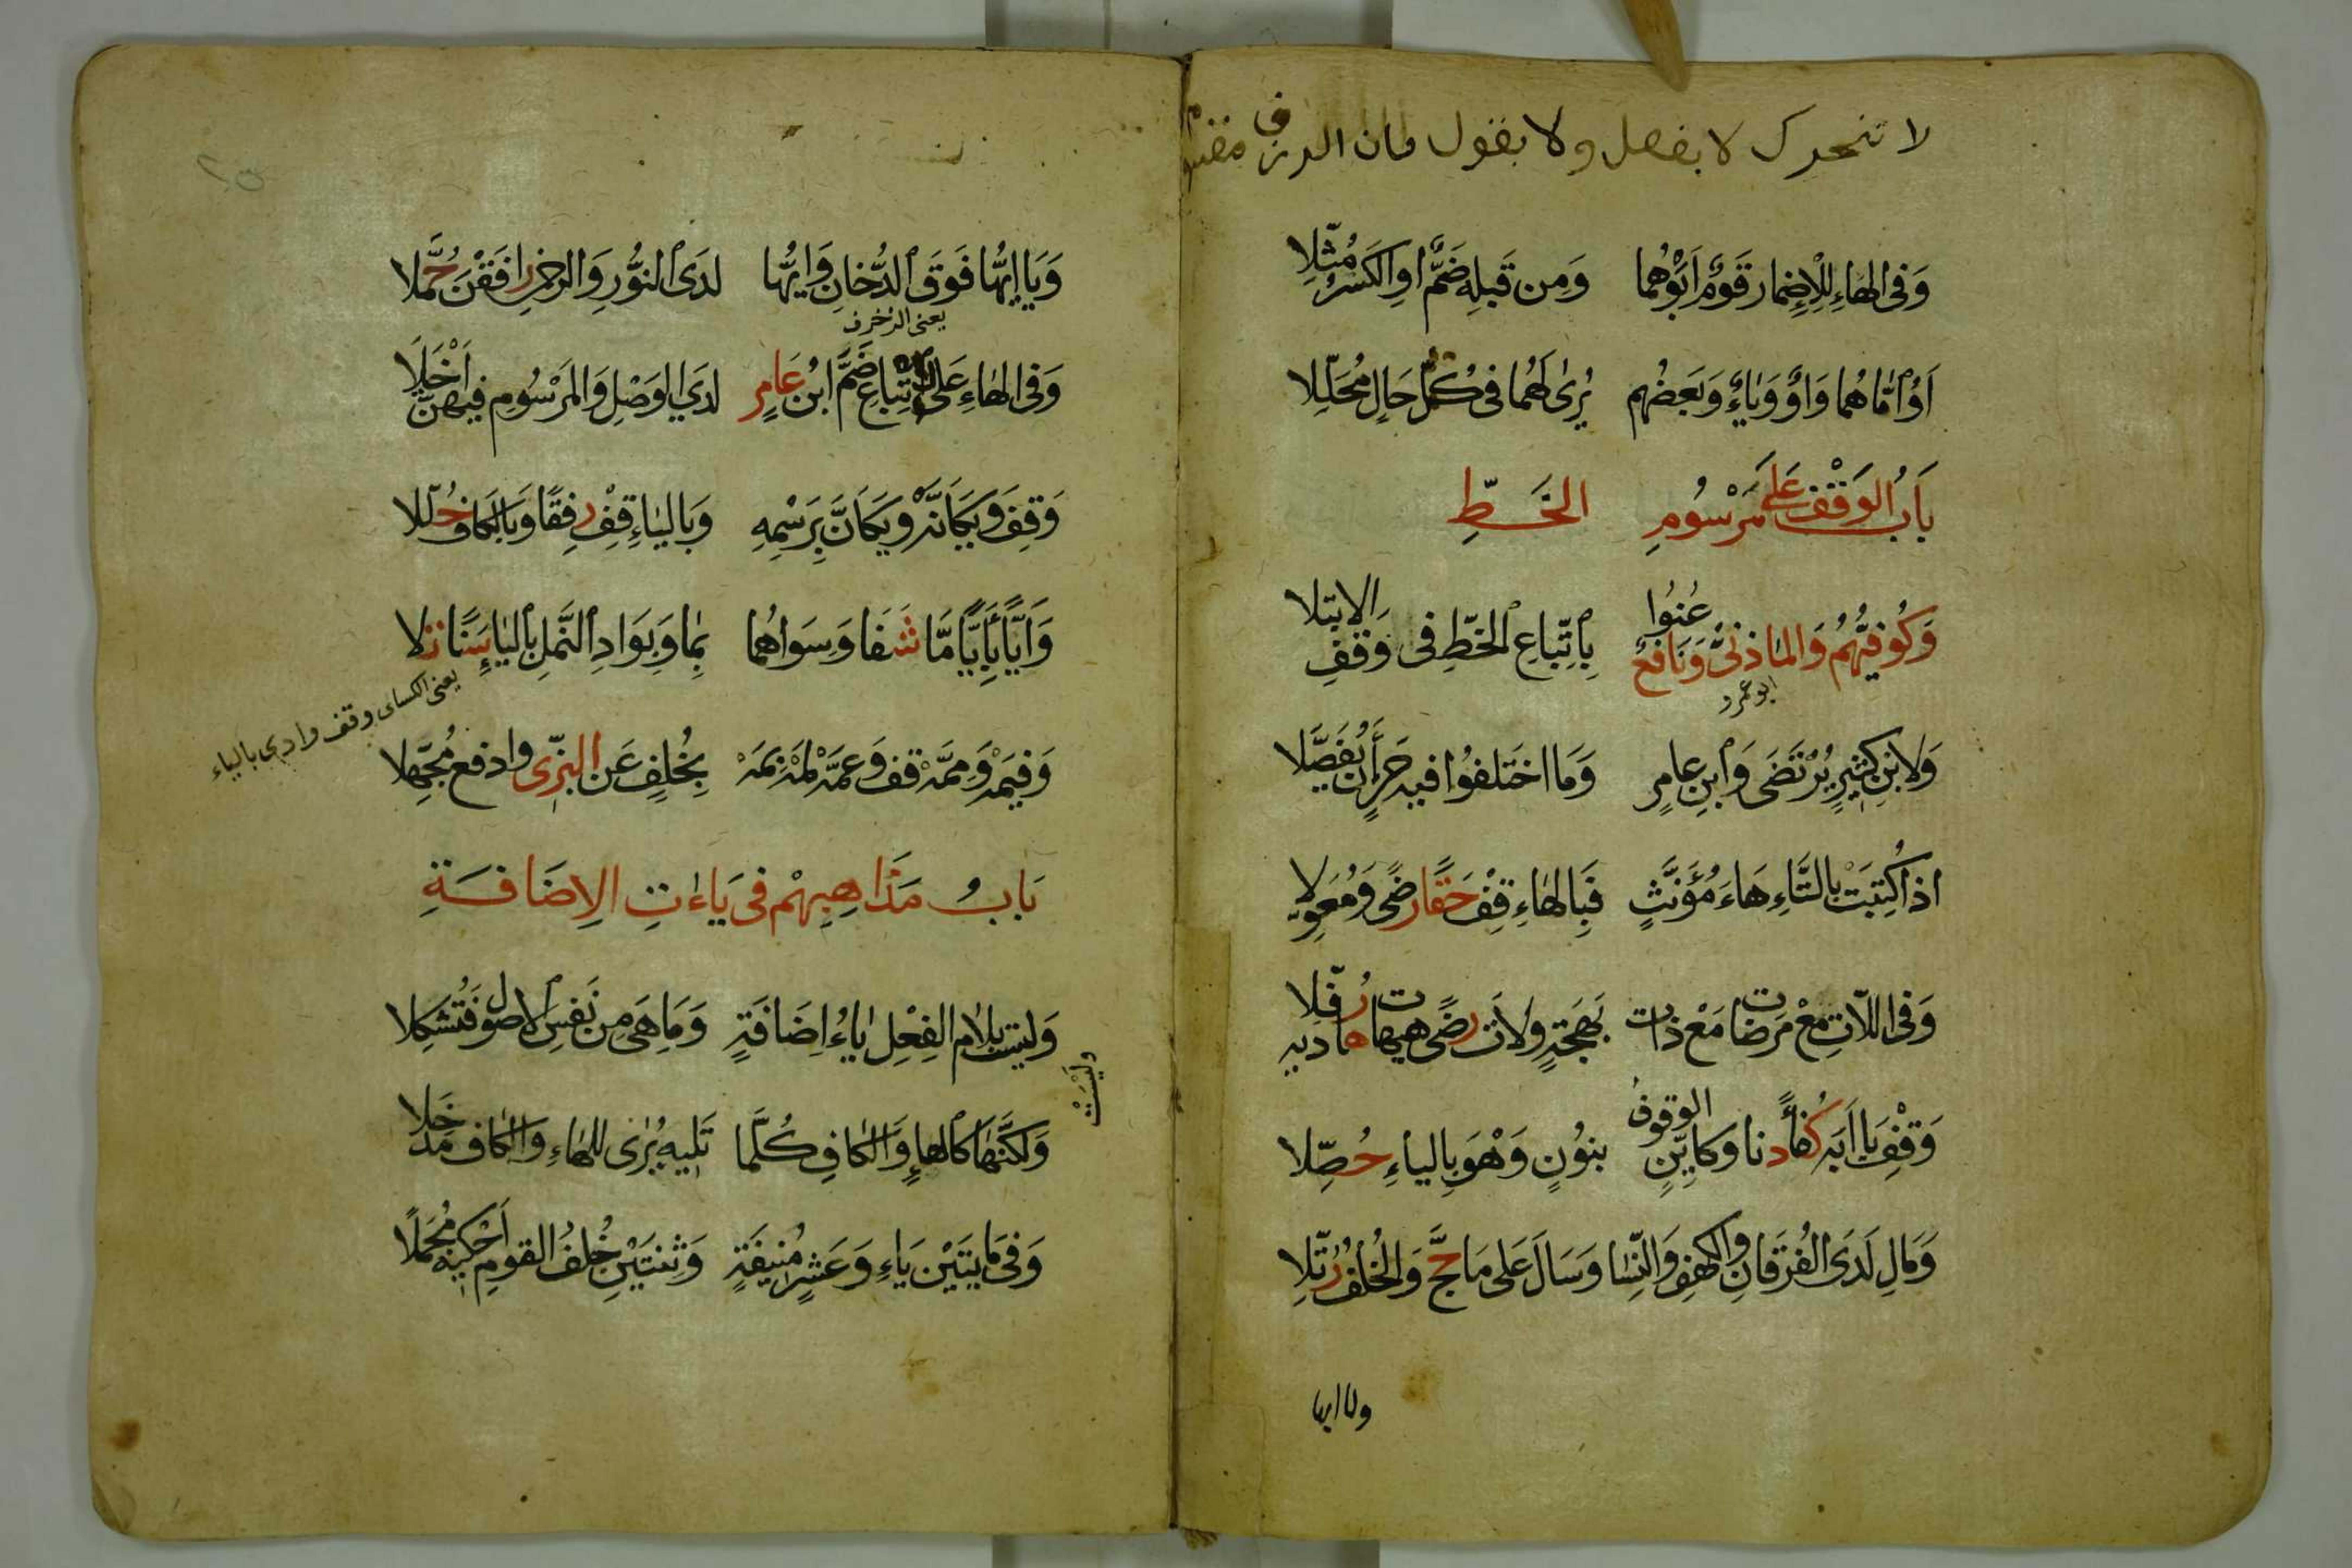 لا تنحرك لا بفصل ولا بقول فان الرزق
وَفِى الهَاءِ لِلْاِضْمَارِ قَوْمٌ اَبَوْهُمَا وَمِن قَبلِهِ ضَمٌّ اوِ الكَسْرُ مُثِّلا
اَوُ امَّاهُمَا وَاوٌ وَيَاءٌ وَبَعضُهُم يُرٰى لَهُمَا فِى كُلِّ حَالٍ مُحَلِّلا
بَابُ الوَقْفِ عَلٰى مَرْسُومِ الخَطِّ
وَكُوفِيُّهُم وَالمَازِنِىْ وَنَافِعٌ عُنُوا بِاتِّبَاعِ الخَطِّ فِى وَقفِ الابتلا
ابو عمرو
وَلابْنِ كَثِيرٍ يُرْتَضَى وَابنِ عامِرٍ وَمَا اختَلَفُوا فيه حَرٍ أَن يُفَصَّلا
اذا كُتِبَتْ بالتَّاءِ هَاءُ مُؤَنَّثٍ فَبِالهَاءِ قِفْ حَقًّا رِضًى وَمُعَوِّلا
وَفِى اللّاتَ مَعْ مَرضَات مَعْ ذات بَهجَةٍ ولاتَ رِضًى هيهات هَاديه رُفِّلا
وَقِفْ يَا اَبَه كُفْأً دنا وكايِّنِ الوقوفُ بنُونٍ وَهْوَ بالياءِ حُصِّلا
وَمَالِ لَدَى الفُرْقَانِ والكهفِ وَالنِّسَا وَسَالَ عَلَى مَا حَجَّ وَالخُلفُ رُتِّلا
ويا ايها
وَيَا ايُّهَا فَوَقَ الدُّخَانِ وَايُّهَا لَدَى النُّورِ وَالرحمٰنِ رَافَقْنَ حُمَّلا
يعنى الزخرف
وَفِى الهَاءِ عَلَى الاتِّبَاعِ ضَمَّ ابْنُ عَامِرٍ لَدَى الوَصْلِ وَالمَرْسُومِ فيهنّ اَخْيَلَا
وَقِف وَيْكَأَنَّهْ وَيكَانَّ بِرَسْمِهِ وَبالياءِ قِفْ رِفقًا وَبالكاف حُلِّلا
وَاَيًّا بِأَيًّا مَّا شَفَا وَسِوَاهُمَا بِمَا وَبِوَادِ النَّملِ باليَا سَنًا تَلا
يعنى الكسائى وقف وادى بالياء
وَفيمَهْ وَمِمَّهْ قف وَعمَّهْ لِمَهْ بِمَهْ بِخُلفٍ عَن البَزِّى وادفع مُجَهِّلا
بَابُ مَذَاهِبِهِمْ فِى يَاءَاتِ الاِضَافَةِ
وَليسَت بِلامِ الفِعْلِ يَاءُ اِضَافَةٍ وَمَا هِىَ مِن نَفسِ الاصُولِ فَتُشكِلا
وَلَيْسَتْ
وَلكنَّهَا كَالهاءِ وَالكافِ كُلَّمَا تَليهِ يُرٰى للهَاءِ وَالكاف مَدخَلا
وَفِى مَايتَيْن يَاءٍ وَعَشرٍ مُنِيفَةٍ وَثِنتَيْنِ خُلفُ القومِ اَحْكِيهِ مُجمَلًا